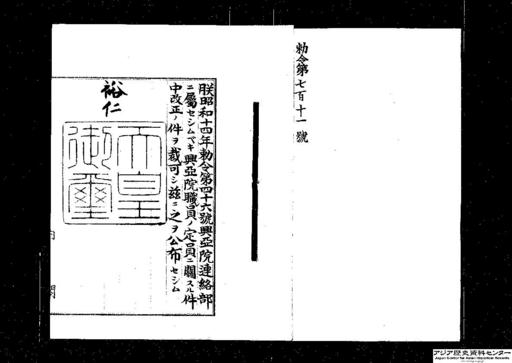 勅令第七百十一號
朕昭和十四年勅令第四十六號興亞院連絡部
ニ屬セシムベキ興亞院職員ノ定員ニ關スル件
中改正ノ件ヲ裁可シ茲ニ之ヲ公布セシム
裕仁
天皇
御璽
内閣
アジア歴史資料センター
Japan Center for Asian Historical Records